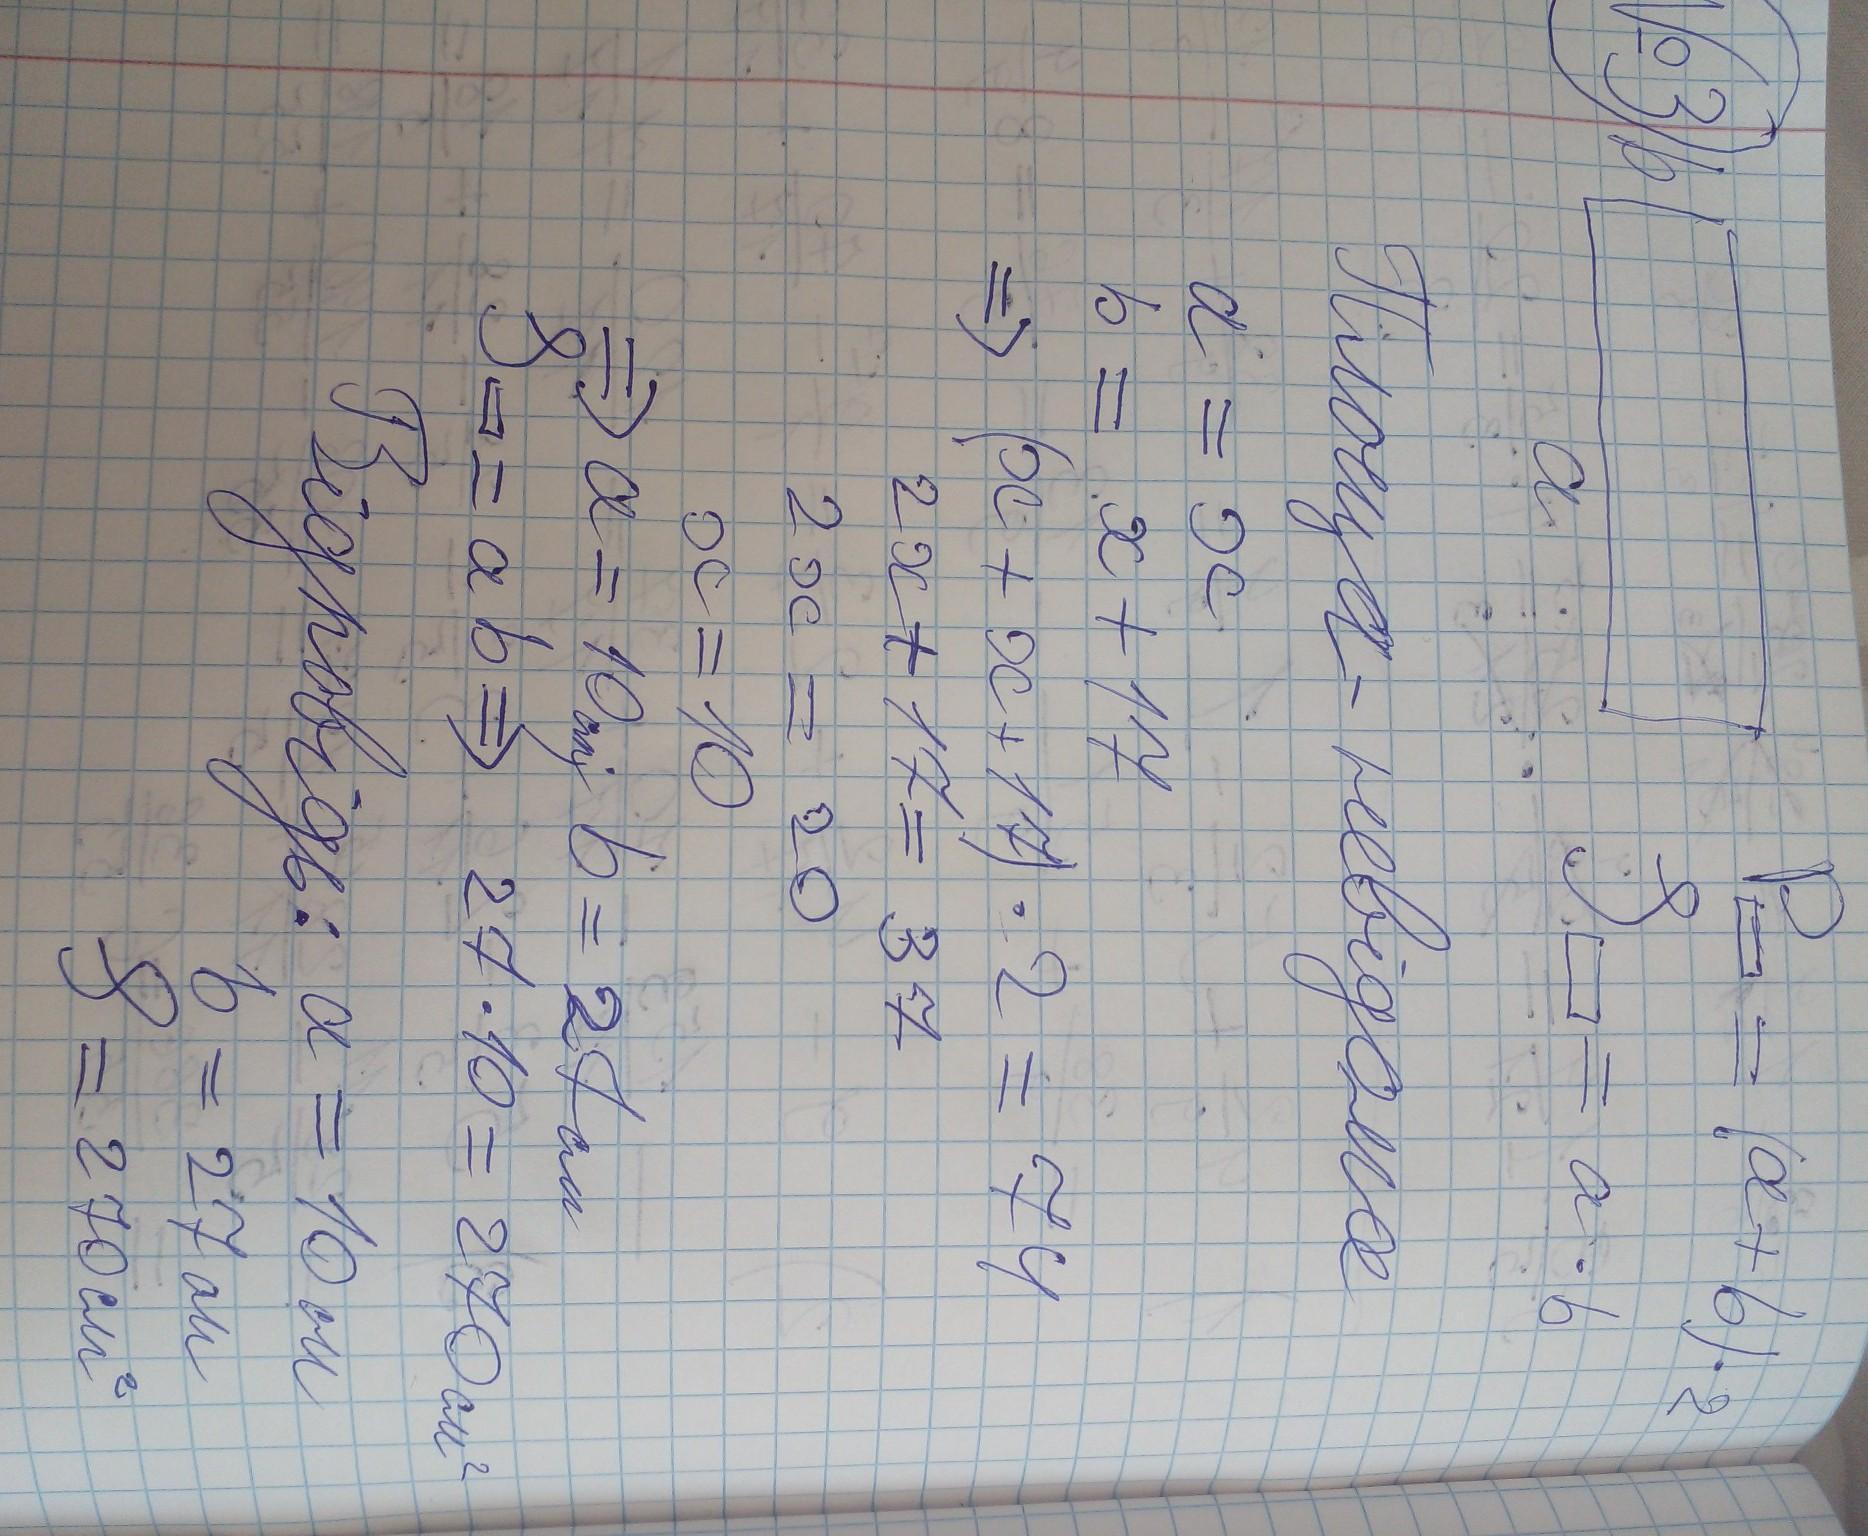 №3
b
a
P▭ = (a+b)·2
S▭ = a·b
Площа - невідоме
a = x
b = x + 17
⇒ (x + x + 17)·2 = 74
2x + 17 = 37
2x = 20
x = 10
⇒ a = 10 см; b = 27 см
S▭ = ab ⇒ 27·10 = 270 см²
Відповідь: a = 10 см
b = 27 см
S = 270 см²